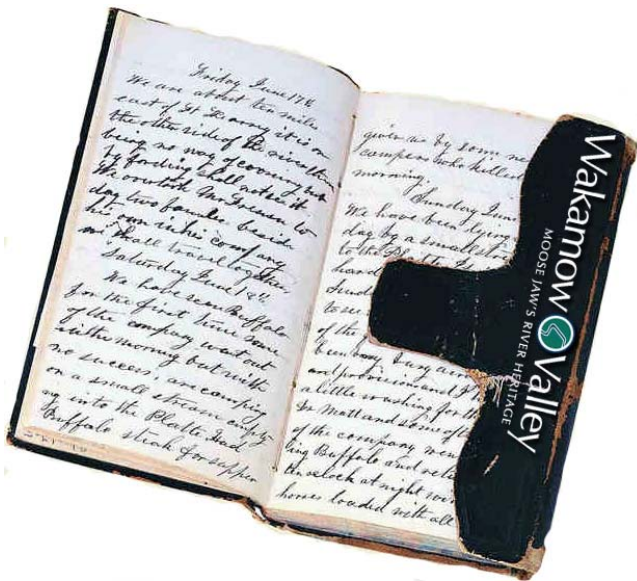 Friday June 17th
We are about ten miles
east of Ft Laramy it is on
the other side of the river there
being no way of crossing but
by fording shall not see it
We overtook Mr Grissen to
day two families beside
his own in his company
we shall travel together
Saturday June 18th
We have seen Buffalo
for the first time some
of the company went out
in the morning but with
no success, are camping
on a small stream empty-
ing into the Platte had
Buffalo steak for supper
given us by some ne
campers who killed
morning.
Sunday June
We have been lying
day by a small stre
to the Platte
hard
Sund
to se
of the
been busy
and provisions and I
a little washing for th
Mr Matt and some of t
of the company wen
ing Buffalo and retu
ten oclock at night wi
horses loaded with all
Wakamow Valley
MOOSE JAW'S RIVER HERITAGE